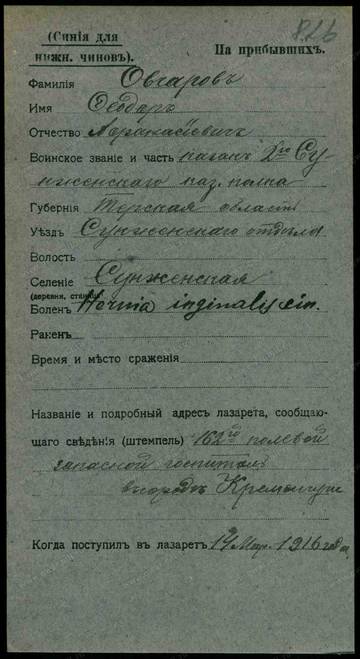 826
(Синія для
нижн. чиновъ).
На прибывшихъ.
Фамилія Овчаровъ
Имя Ѳеодоръ
Отчество Аѳанасіевичъ
Воинское званіе и часть казакъ 2го Сун-
женскаго каз. полка
Губернія Терская область
Уѣздъ Сунженскаго отдѣла
Волость
Селеніе Сунженская
(деревня, станица)
Боленъ Hernia inginalis sin.
Раненъ
Время и мѣсто сраженія
Названіе и подробный адресъ лазарета, сообщаю-
щаго свѣдѣнія (штемпель) 162го полевой
запасной госпиталь
въ городѣ Кременчугѣ
Когда поступилъ въ лазаретъ 14 Мар. 1916 года